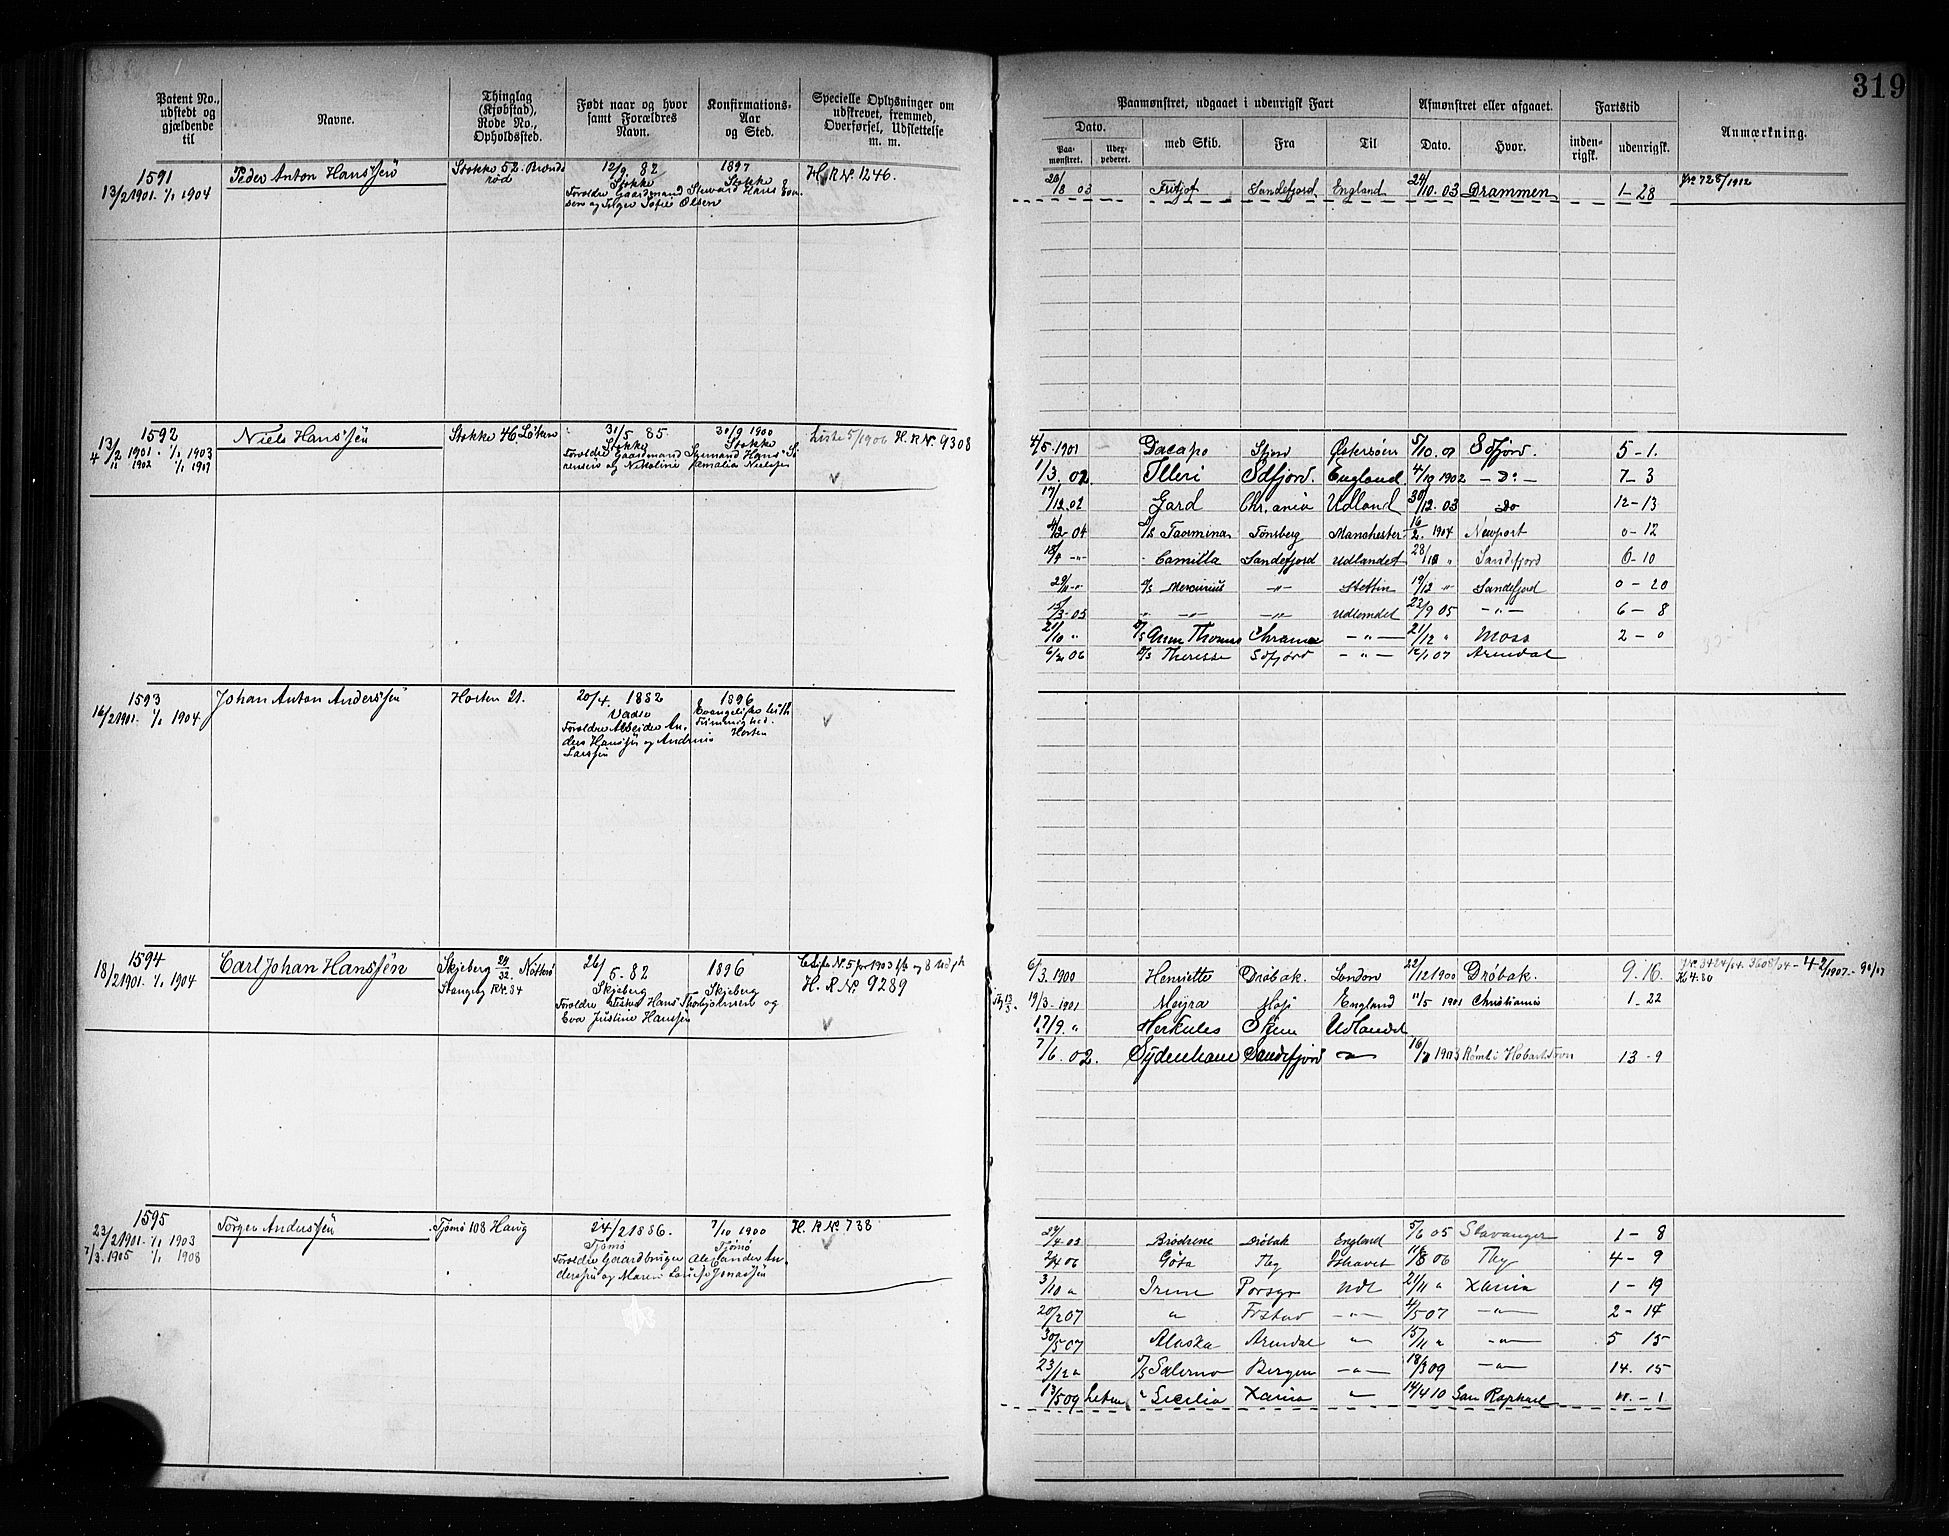 319
Patent No., udstedt og gjældende til
Navne.
Thinglag (Kjøbstad), Rode No., Opholdssted.
Født naar og hvor samt Forældres Navn.
Konfirmations-Aar og Sted.
Specielle Oplysninger om udskrevet, fremmed, Overførsel, Udslettelse m. m.
Paamønstret, udgaaet i udenrigsk Fart
Afmønstret eller afgaaet.
Fartstid
Anmærkning.
Dato.
Paamønstret.
Udexpederet.
med Skib.
Fra
Til
Dato.
Hvor.
indenrigsk.
udenrigsk.
1591
13/2 1901. 1/1 1904
Peder Anton Hanssen
Stokke 52. Brændsrød
12/9 82
Stokke
1897
Stokke
H. R Nº. 1246.
Forældre Gaardmand Styrmand Hans Evensen og Inger Sofie Olsen
20/8 03 Fritjof Sandefjord England 24/10. 03 Drammen 1-28
1592
13/2 1901. 1/1 1903
4/11 1902 1/1 1907
Niels Hanssen
Stokke 46.
31/5 85.
Stokke
30/9 1900
Stokke
Liste 5/1906 H. R Nº. 9308
4/5-1901 Dacapo Sfjord Østersøen 5/10. 01 Sdfjord. 5-1.
1/3. 02 Illeri Sdfjord. England 4/10 1902 — Do — 7-3
17/12.02 Gard Chr.ania Udland 30/12. 03 Do 12-13
4/2 04 D/S Taormina Tønsberg Manchester 16/2. 1904 Newport 0-12
18/4 -"- Camilla Sandefjord Udlandet 28/10 " Sandefjord 6-10
29/11 -"- D/S Mercurius -"- Stettin 19/12 " Sandefjord 0-20
/3-05 " -"- -"- Udlandet 22/9 05 -"- 6-8
21/10 " D/S Thomas Chrania -"- 21/12 " Moss 2-0
6/2 06 D/S Therese Sdfjord -"- 12/1 07 Arendal
1593
16/2 1901. 1/1 1904
Johan Anton Anderssen
Horten 21.
20/4. 1882
Vadsø
Forældre Arbeider Anders Hanssen og Andrine Larssen
1896
Evangelisk luth Frimenighed. Horten
1594
18/2 1901. 1/1 1904
Carl Johan Hanssen
Skjeberg 24/32. Nøtterø
26/5-82
Skjeberg
1896
Skjeberg
H. R Nº. 9289
Forældre Fisker Hans Thorbjørnsen og
Eva Justine Hanssen
6/3. 1900 Henriette Drøbak. London 22/12 1900 Drøbak. 9-16.
19/3-1901 Meyra Moss England 11/5 1901 Christiania 1-22
17/9. " Herkules Skien Udlandet
7/6. 02. Sydenham Sandefjord -"- 16/ 1903 Rømt i Hobart Town 13-9
1595
23/2 1901. 1/1 1903
7/3. 1905 1/1 1908
Jørgen Anderssen
Tjømø 108 Haug
24/2 1886.
Tjømø
7/10 1900
Tjømø
H. R Nº. 738
Forældre Gaardbruger Alexander Anderssen og Maren Louise Jonassen
29/4 03 Brødrene Drøbak England 5/6 05 Stavanger 1-8
2/4 06 Göta Tbg Ishavet 11/8 06 Tbg 4-9
3/10 " Irene Porsgr Udl 21/11 " Xania 1-19
20/2 07 " Frstad -"- 4/5 07 -"- 2-14
30/5 07 Alaska Arendal " 15/11 " -"- 5 15
23/12 " D/S Salerno Bergen -"- 18/3 09 -"- 14. 15
13/5 09 " Secilia Xania " 14/4 10 San Raphael 11.-1